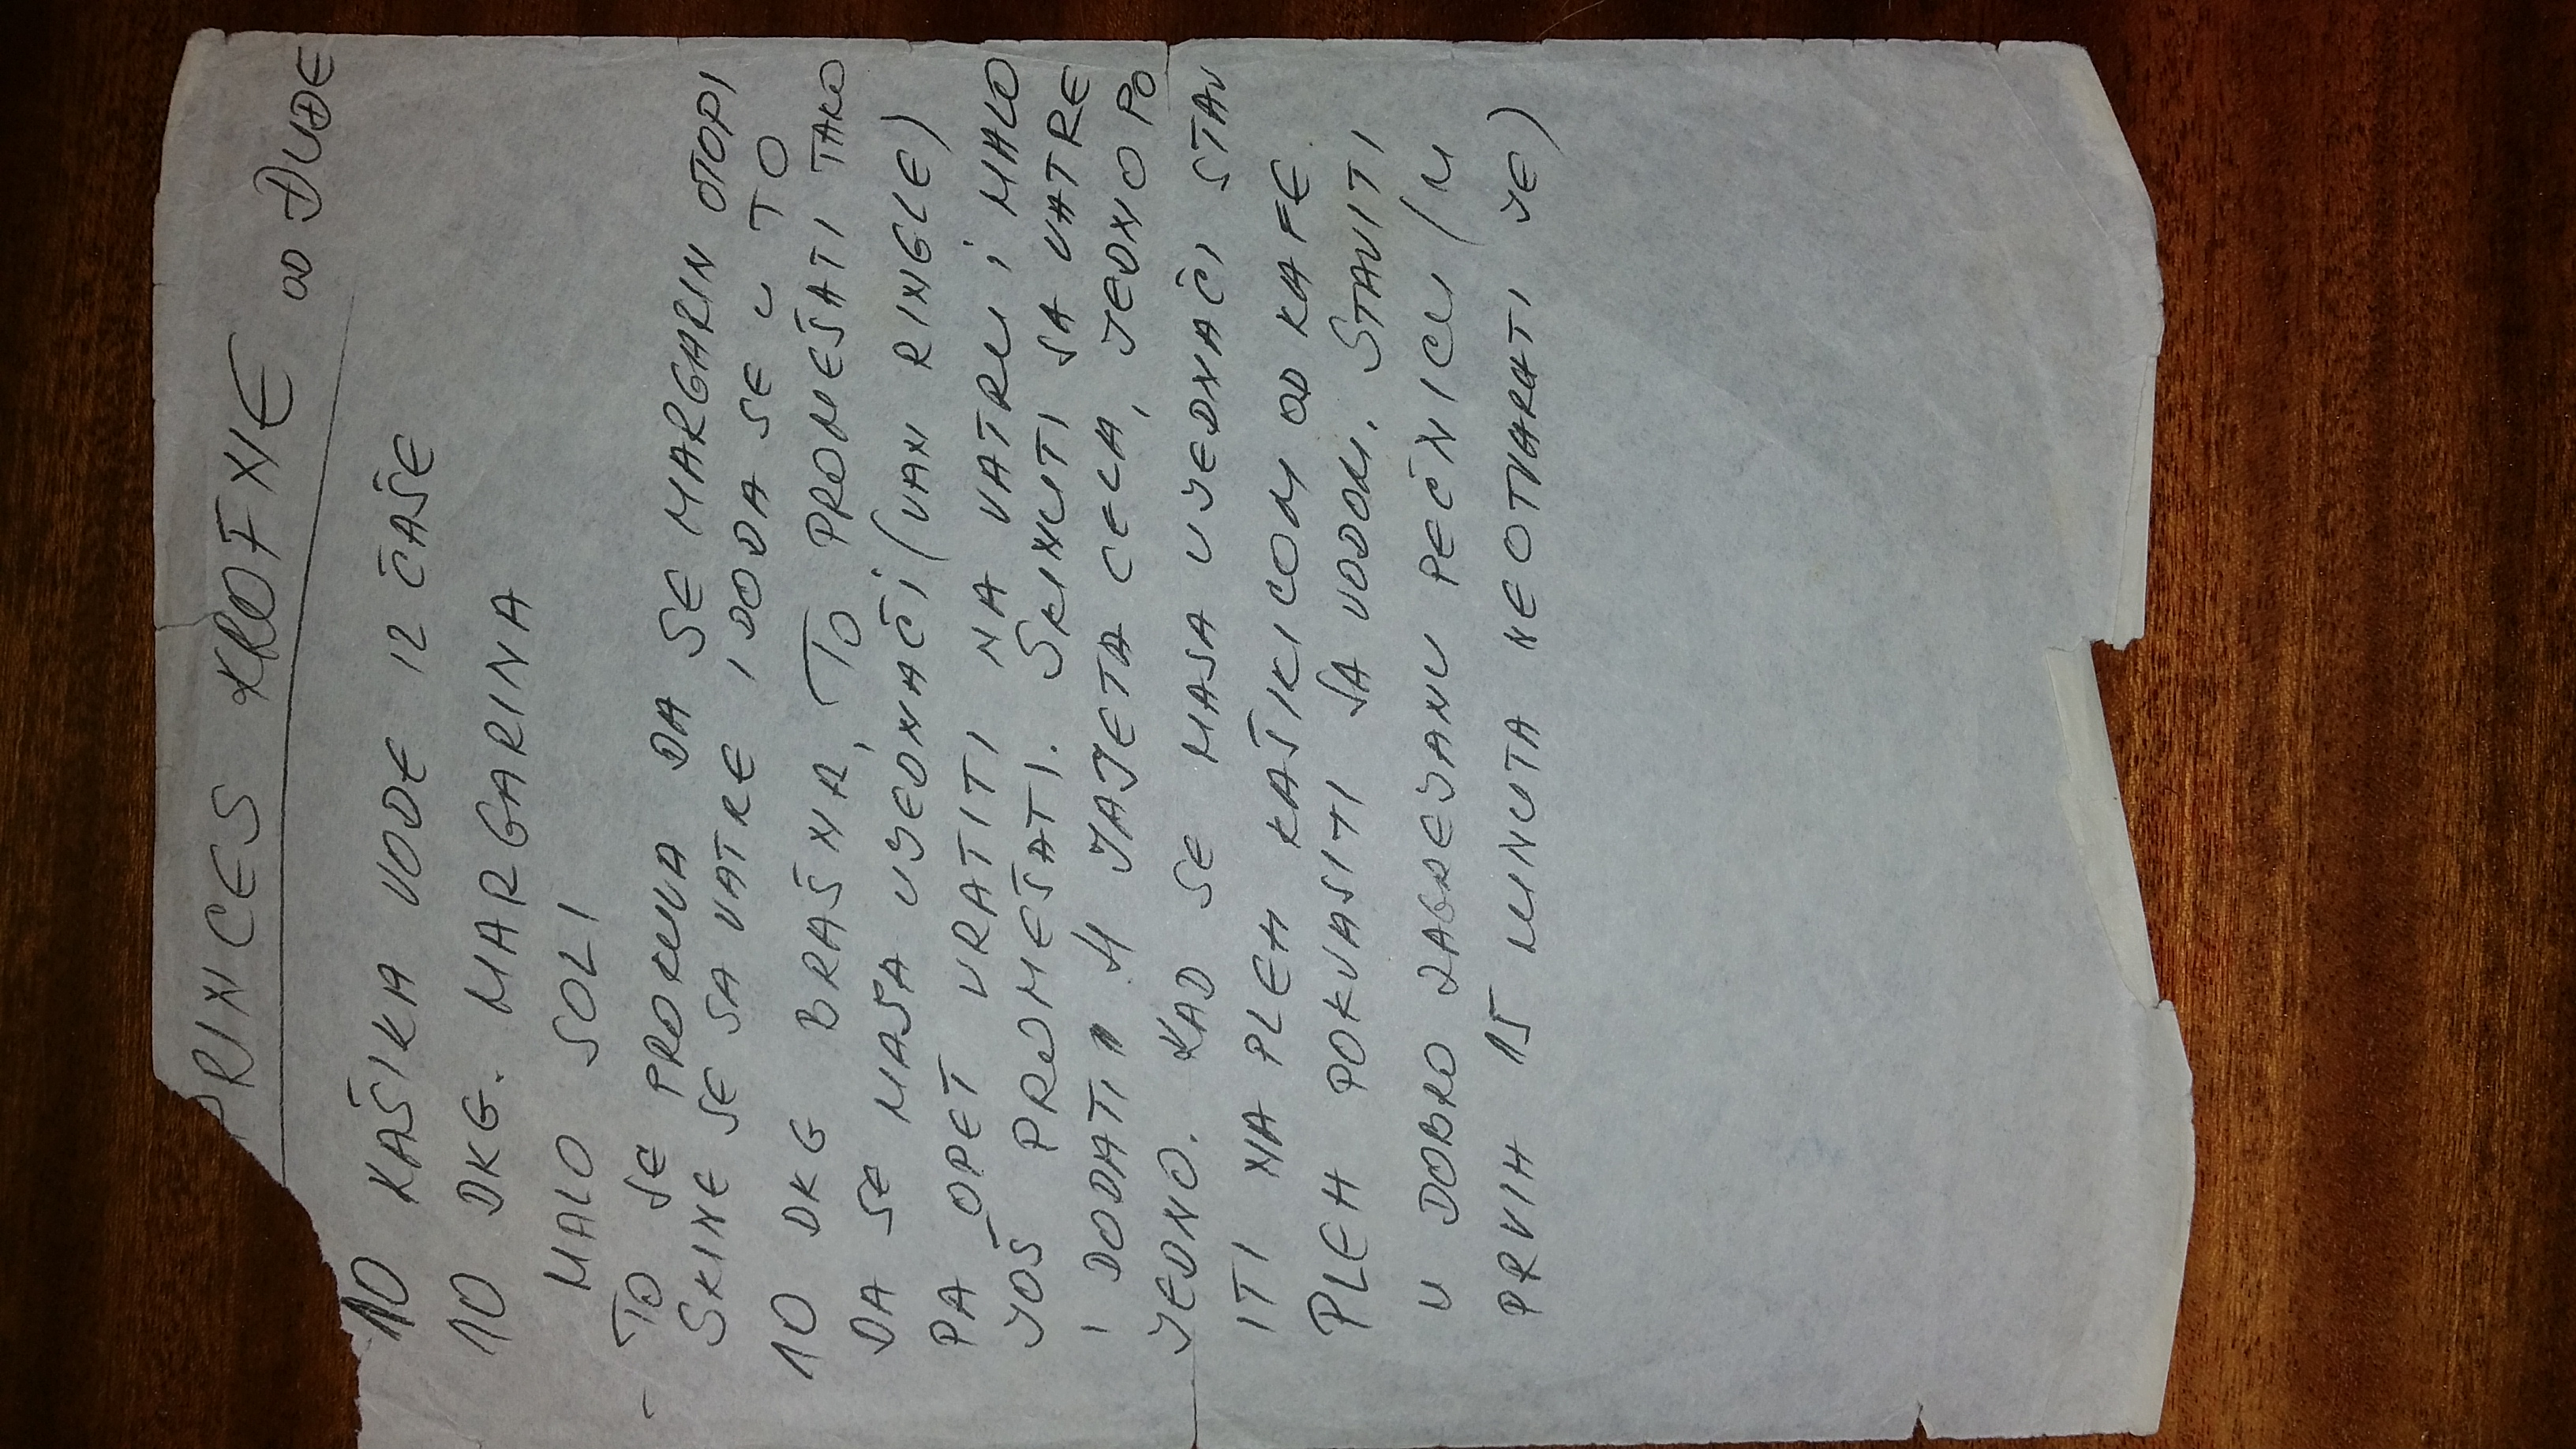 PRINCES KROFNE OD ĐUĐE
10 KAŠIKA VODE IZ ČAŠE
10 DKG. MARGARINA
MALO SOLI
- TO SE PROKUVA DA SE MARGARIN OTOPI
SKINE SE SA VATRE I DODA SE U TO
10 DKG BRAŠNA, TO PROMEŠATI TAKO
DA SE MASA UJEDNAČI (VAN RINGLE)
PA OPET VRATITI NA VATRU I MALO
JOŠ PROMEŠATI. SKINUTI SA VATRE
I DODATI 4 JAJETA CELA, JEDNO PO
JEDNO. KAD SE MASA UJEDNAČI STAV
ITI NA PLEH KAŠIKICOM OD KAFE
PLEH POKVASITI SA VODOM. STAVITI
U DOBRO ZAGREJANU PEČNICU (U
PRVIH 15 MINUTA NE OTVARATI JE)